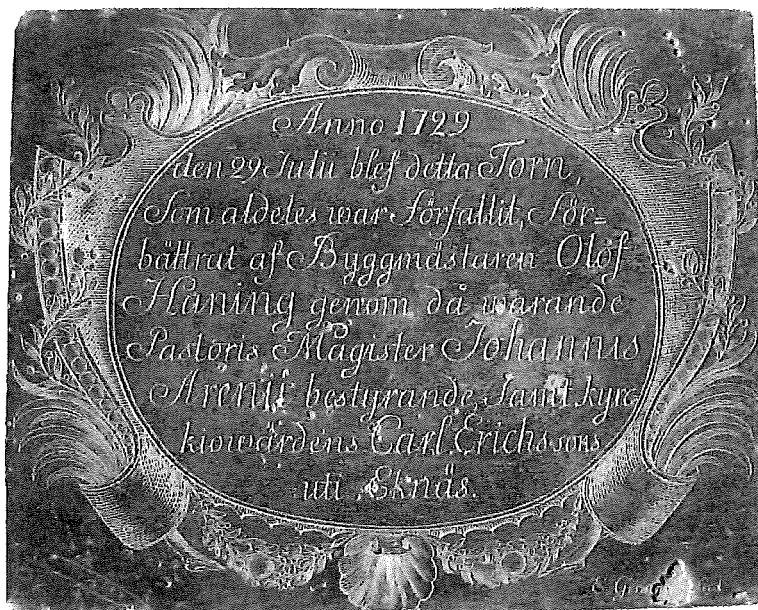 Anno 1729
den 29 Julii blef detta Torn,
Som aldeles war förfallit, För=
bättrat af Byggmästaren Olof
Haning genom då warande
Pastoris Magister Johannis
Arenii bestyrande, Samt kyrc
kiowärdens Carl Erichssons
uti Eknäs.